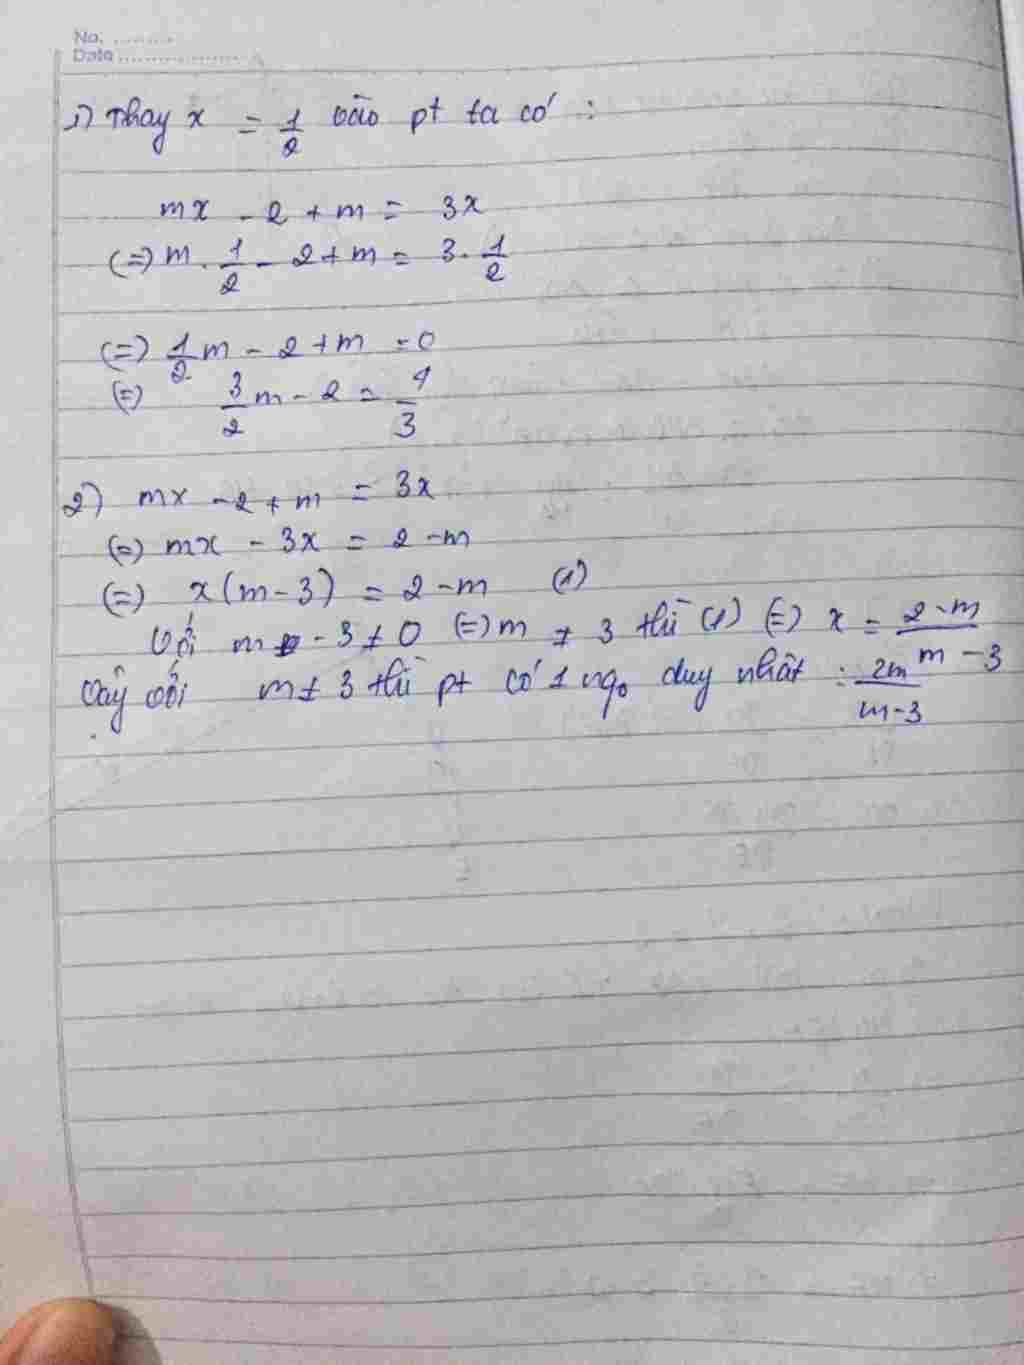 No. .........
Date ..................
1) Thay x = 1/2 vào pt ta có :
mx - 2 + m = 3x
(=) m . 1/2 - 2 + m = 3 . 1/2
(=) 1/2 m - 2 + m = 0
(=) 3/2 m - 2 = 4/3
2) mx - 2 + m = 3x
(=) mx - 3x = 2 - m
(=) x(m - 3) = 2 - m (1)
Với m - 3 ≠ 0 (=) m ≠ 3 thì (1) (=) x = 2-m/m-3
Vậy với m ≠ 3 thì pt có 1 ngo duy nhất : 2m/m-3